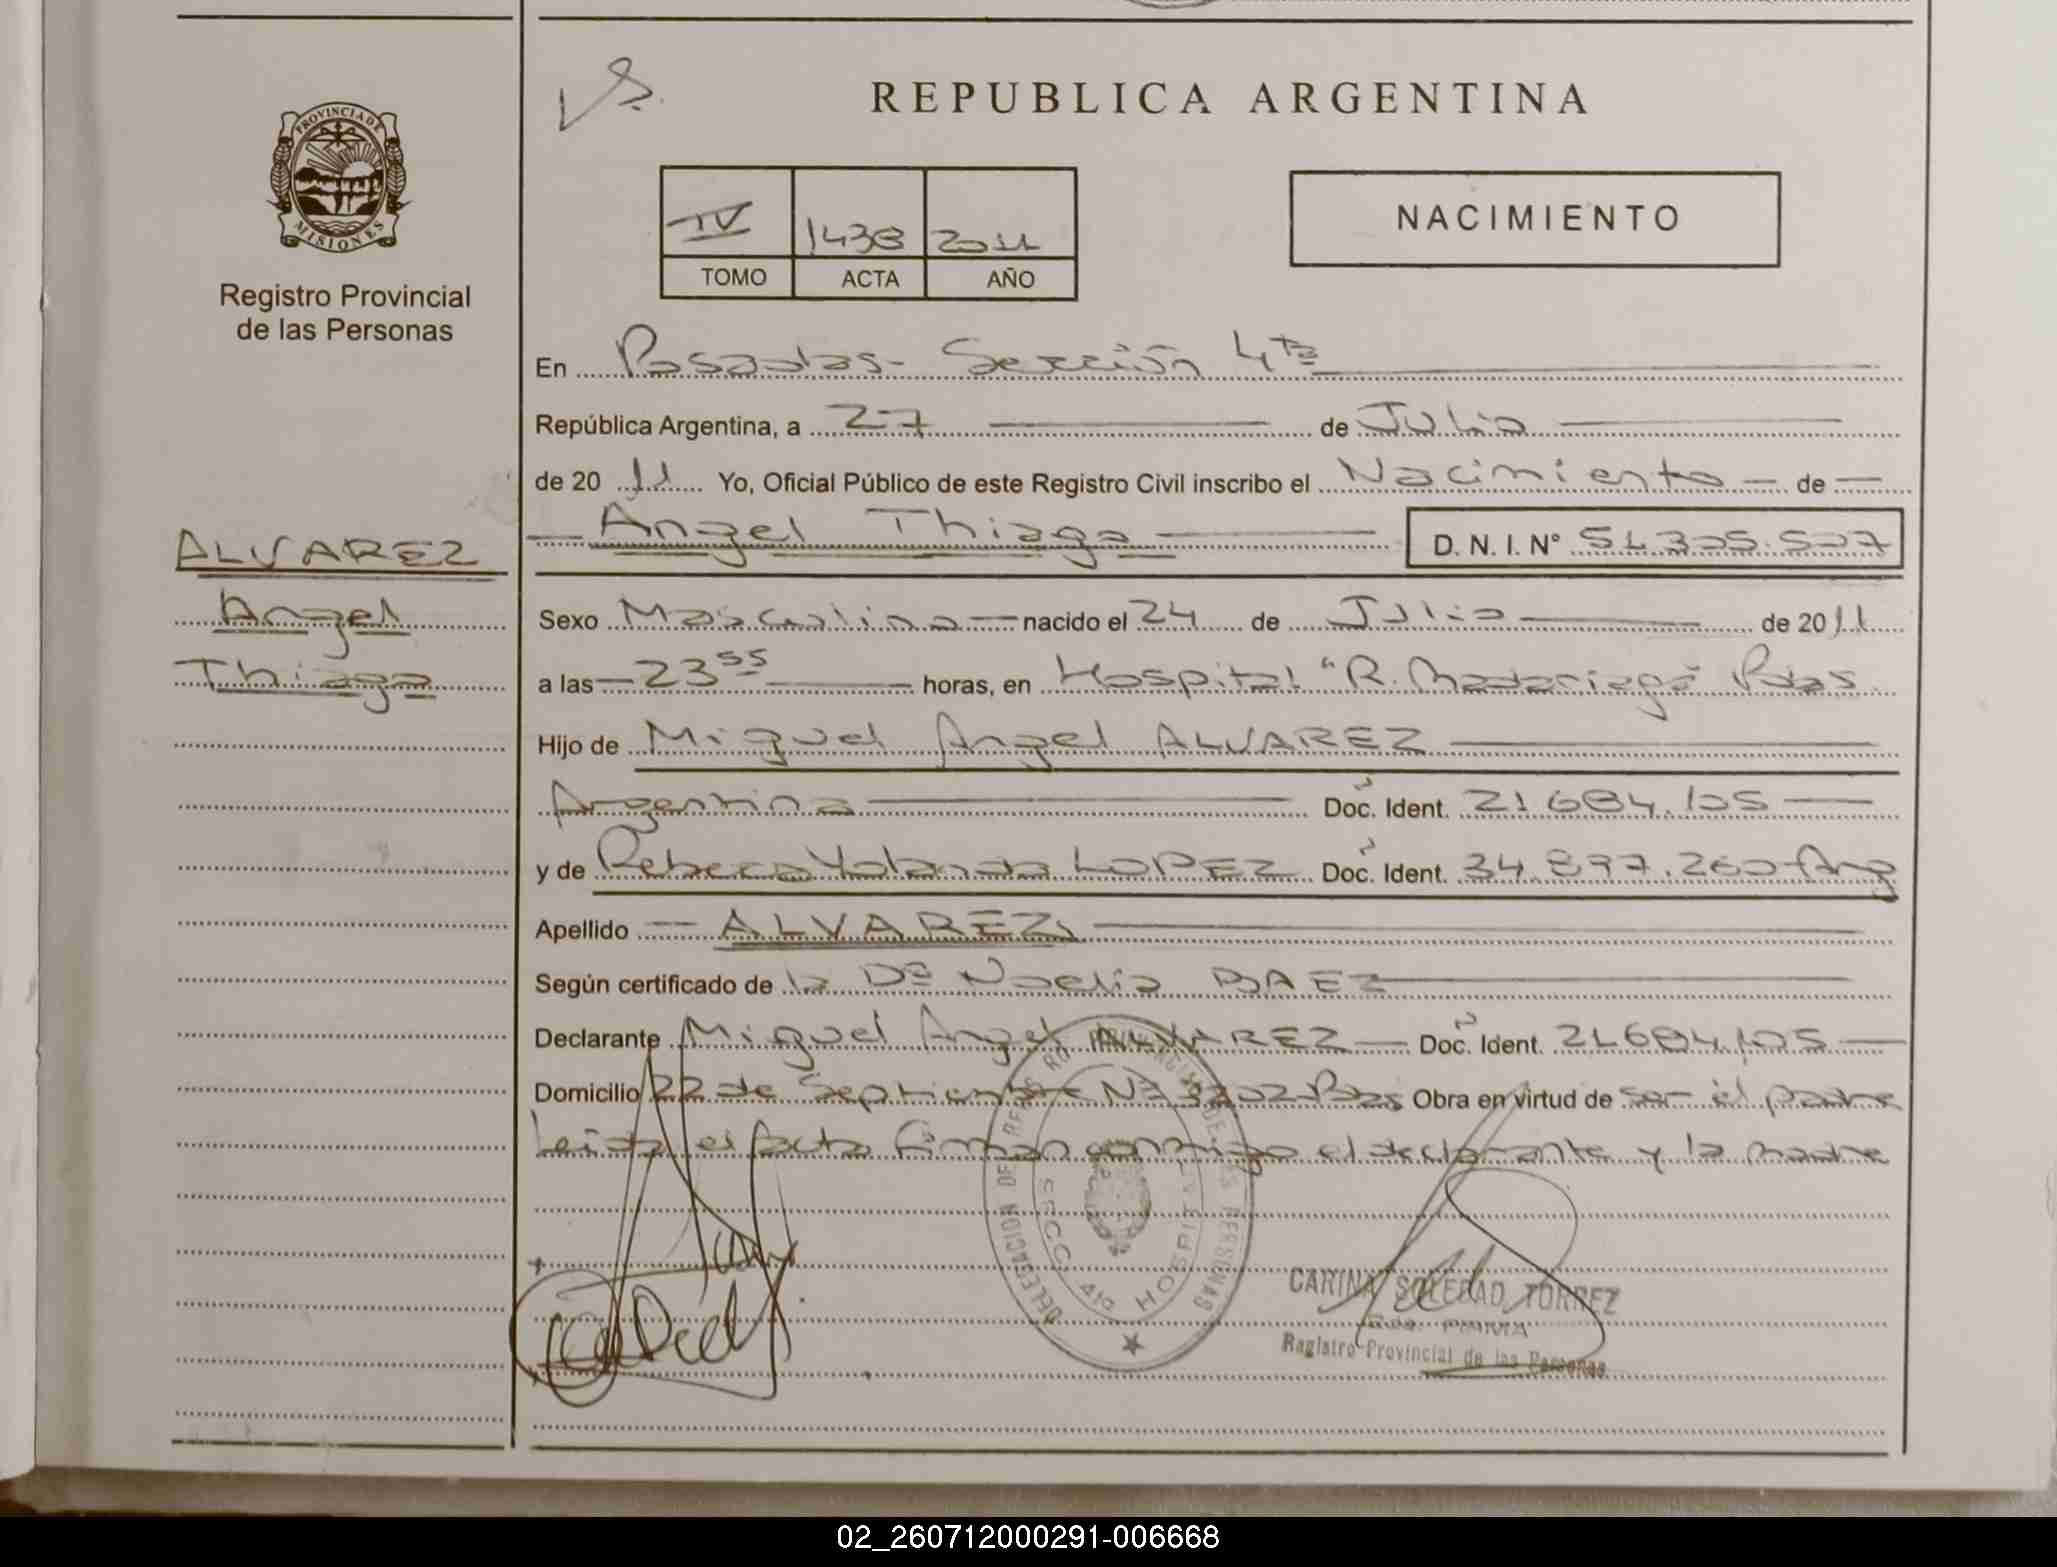 REPUBLICA ARGENTINA
PROVINCIA DE
MISIONES
Registro Provincial
de las Personas
IV 1438 2011
TOMO ACTA AÑO
NACIMIENTO
En Posadas - Sección 4ta
República Argentina, a 27 de Julio
de 20 11 Yo, Oficial Público de este Registro Civil inscribo el Nacimiento de
Angel Thiago D. N. I. N° 51.305.507
ALVAREZ
Angel
Thiago
Sexo Masculino nacido el 24 de Julio de 2011
a las 23 55 horas, en Hospital "R. Madariaga" Pdas
Hijo de Miguel Angel ALVAREZ
Argentina Doc. Ident. 21684.105
y de Rebeca Yolanda LOPEZ Doc. Ident. 34.897.260 Arg
Apellido ALVAREZ
Según certificado de la Dª Noelia BAEZ
Declarante Miguel Angel ALVAREZ Doc. Ident. 21684.105
Domicilio 22 de Septiembre Nº Pdas Obra en virtud de ser el padre
Leida el acta firman conmigo el declarante y la madre
DELEGACION DE PERSONAS
SECC 4ta HOSPITAL
CARINA SOLEDAD TORREZ
Registro Provincial de las Personas
02_260712000291-006668